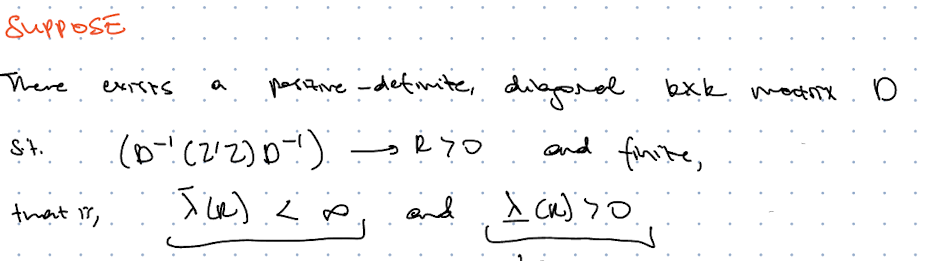 SUPPOSE
There exists a positive-definite, diagonal kxk matrix D
s.t. (D⁻¹(Z'Z)D⁻¹) → R > 0 and finite,
that is, λ̄(R) < ∞, and λ̲(R) > 0